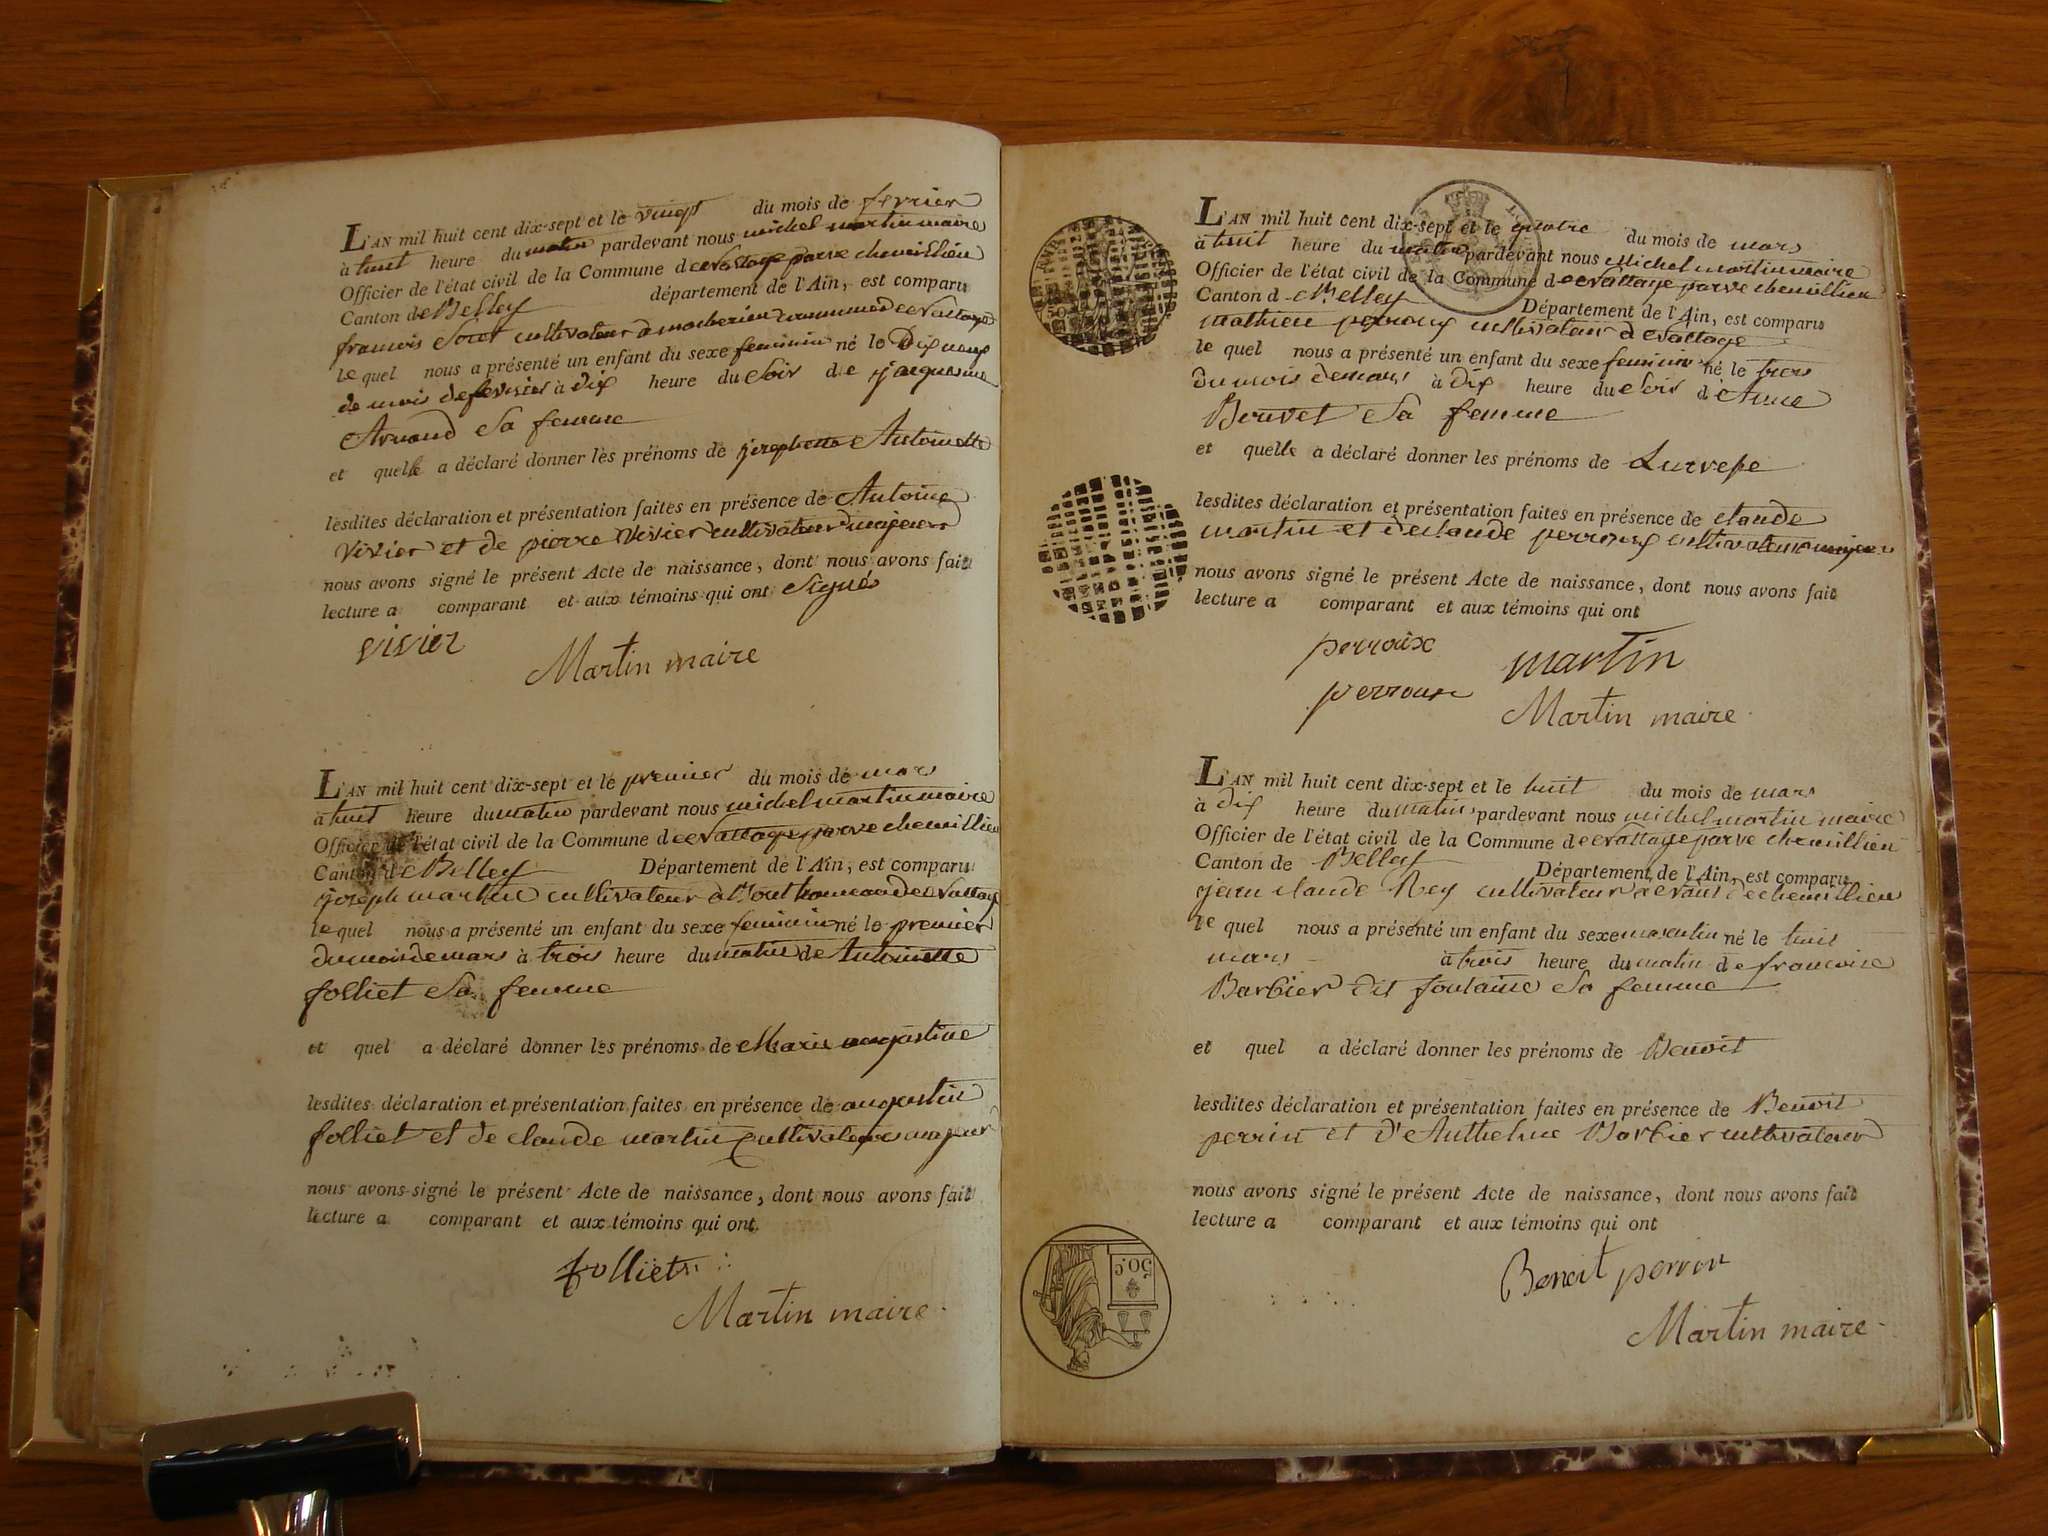 L'AN mil huit cent dix-sept et le vingt du mois de fevrier
à huit heure du matin pardevant nous michel martin maire
Officier de l'état civil de la Commune de evattage parve chemillieu
Canton de Belley département de l'Ain, est comparu
francois cultivateur a commune de evattage
le quel nous a présenté un enfant du sexe feminin né le Dix neuf
de mois de fevrier à dix heure du Soir de jacquesme
Arnaud Sa femme
et quelle a déclaré donner les prénoms de josephette Antoinette
lesdites déclaration et présentation faites en présence de Antoine
Vivier et de pierre Vivier cultivateur majeurs
nous avons signé le présent Acte de naissance, dont nous avons fait
lecture a comparant et aux témoins qui ont Signés
vivier
Martin maire
L'AN mil huit cent dix-sept et le premier du mois de mars
à huit heure du matin pardevant nous michel martin maire
Officier de l'état civil de la Commune de evattage parve chemillieu
Canton de Belley Département de l'Ain, est comparu
joseph martin cultivateur à de evattage
le quel nous a présenté un enfant du sexe feminin né le premier
du mois de mars à trois heure du matin de Antoinette
folliet Sa femme
et quel a déclaré donner les prénoms de Marie augustine
lesdites déclaration et présentation faites en présence de augustin
folliet et de claude martin cultivateurs majeur
nous avons signé le présent Acte de naissance, dont nous avons fait
lecture a comparant et aux témoins qui ont
folliet
Martin maire
L'AN mil huit cent dix-sept et le quatre du mois de mars
à huit heure du matin pardevant nous Michel martin maire
Officier de l'état civil de la Commune de evattage parve chemillieu
Canton d Belley Département de l'Ain, est comparu
mathieu perroux cultivateur a evattage
le quel nous a présenté un enfant du sexe feminin né le trois
du mois de mars à dix heure du Soir d'Anne
Bouvet Sa femme
et quelle a déclaré donner les prénoms de
lesdites déclaration et présentation faites en présence de claude
martin et de claude perroux cultivateurs majeurs
nous avons signé le présent Acte de naissance, dont nous avons fait
lecture a comparant et aux témoins qui ont
perroux martin
perroux Martin maire
L'AN mil huit cent dix-sept et le huit du mois de mars
à dix heure du matin pardevant nous michel martin maire
Officier de l'état civil de la Commune de evattage parve chemillieu
Canton de Belley Département de l'Ain, est comparu
jean claude Rey cultivateur de chemillieu
le quel nous a présenté un enfant du sexe masculin né le huit
mars à trois heure du matin de francoise
Barbier dit fontaine Sa femme
et quel a déclaré donner les prénoms de Benoit
lesdites déclaration et présentation faites en présence de Benoit
perrin et d'Anthelme Barbier cultivateur
nous avons signé le présent Acte de naissance, dont nous avons fait
lecture a comparant et aux témoins qui ont
Benoit perrin
Martin maire
50.c